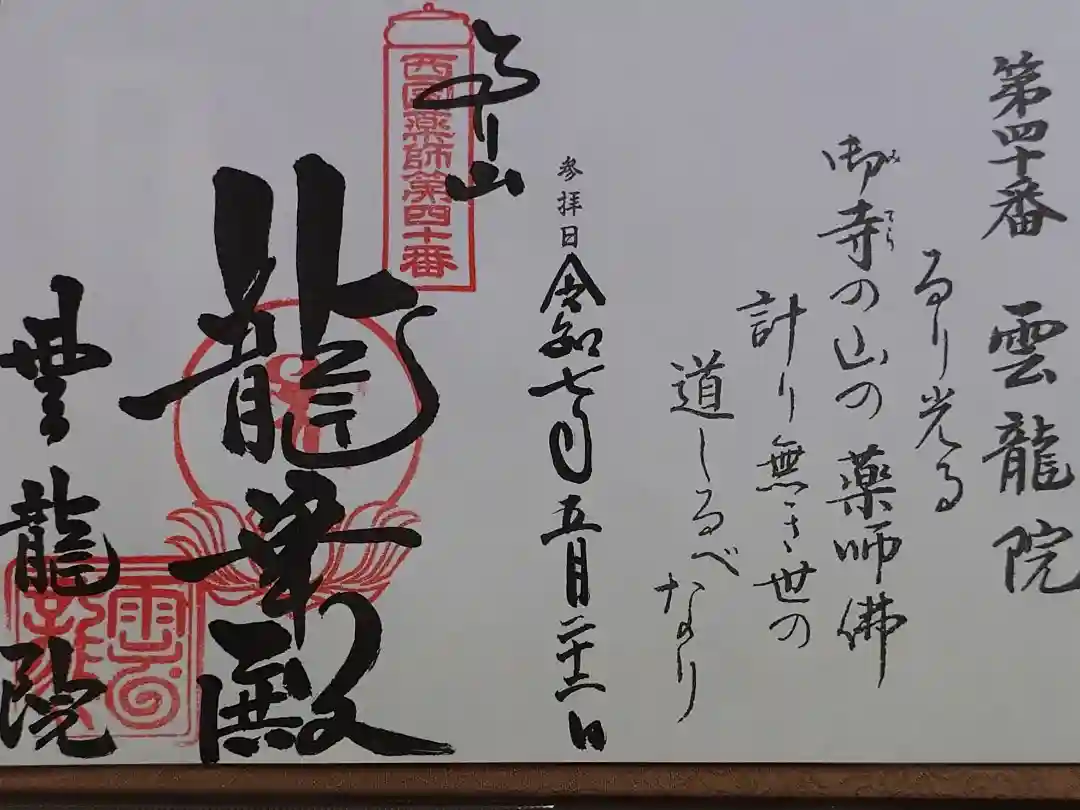 第四十番 雲龍院
るり光る
御寺の山の薬師佛
みてら
計り無き世の
道しるべなり
参拝日 令和七年五月二十二日
泉山
西国薬師第四十番
龍華殿
雲龍院